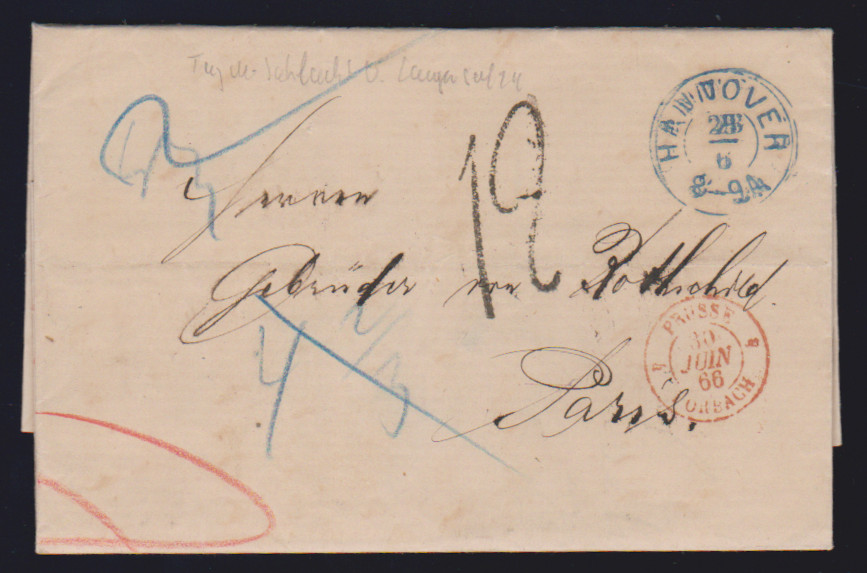 Tag der Schlacht v. Langensalza
HANNOVER
6
8-9A
Herren
12
Gebrüder von Rothschild.
PRUSSE
30
JUIN
66
FORBACH
4 2/3
Paris.